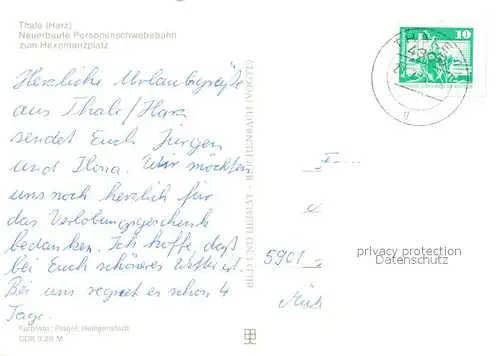 Thale (Harz)
Neuerbaute Personenschwebebahn
zum Hexentanzplatz
Herzliche Urlaubsgrüße
aus Thale/Harz
sendet Euch Jürgen
und Ilona. Wir möchten
uns noch herzlich für
das Verlobungsgeschenk
bedanken. Ich hoffe, daß
bei Euch schöneres Wetter ist.
Bei uns regnet es schon 4
Tage.
Farbfoto: Pingel, Heiligenstadt
GDR 0,20 M
BILD UND HEIMAT · REICHENBACH (VOGTL)
10
THALE
F
5901
privacy protection
Datenschutz